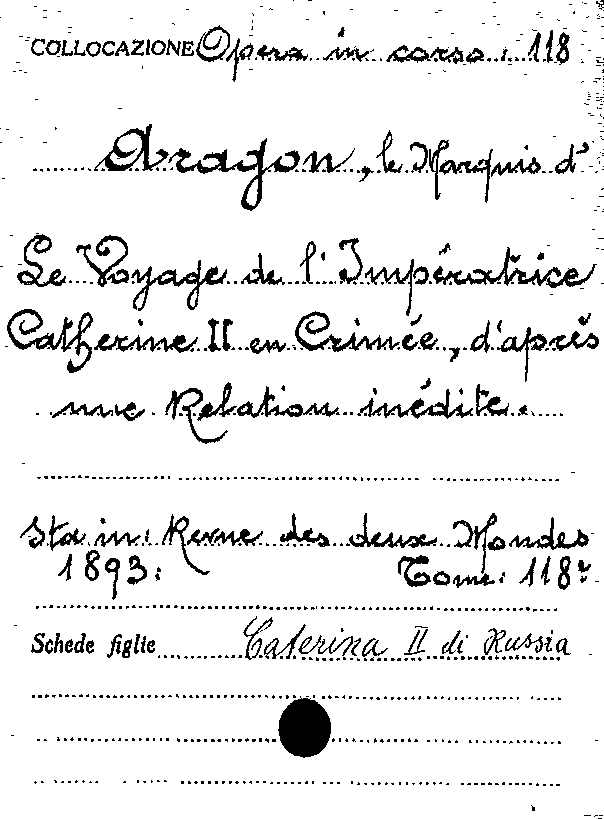 COLLOCAZIONE Opera in corso: 118
Aragon, le Marquis d'
Le Voyage de l'Impératrice
Catherine II en Crimée, d'après
une Relation inédite.
Sta in: Revue des deux Mondes
1893: Tome: 118º
Schede figlie Caterina II di Russia